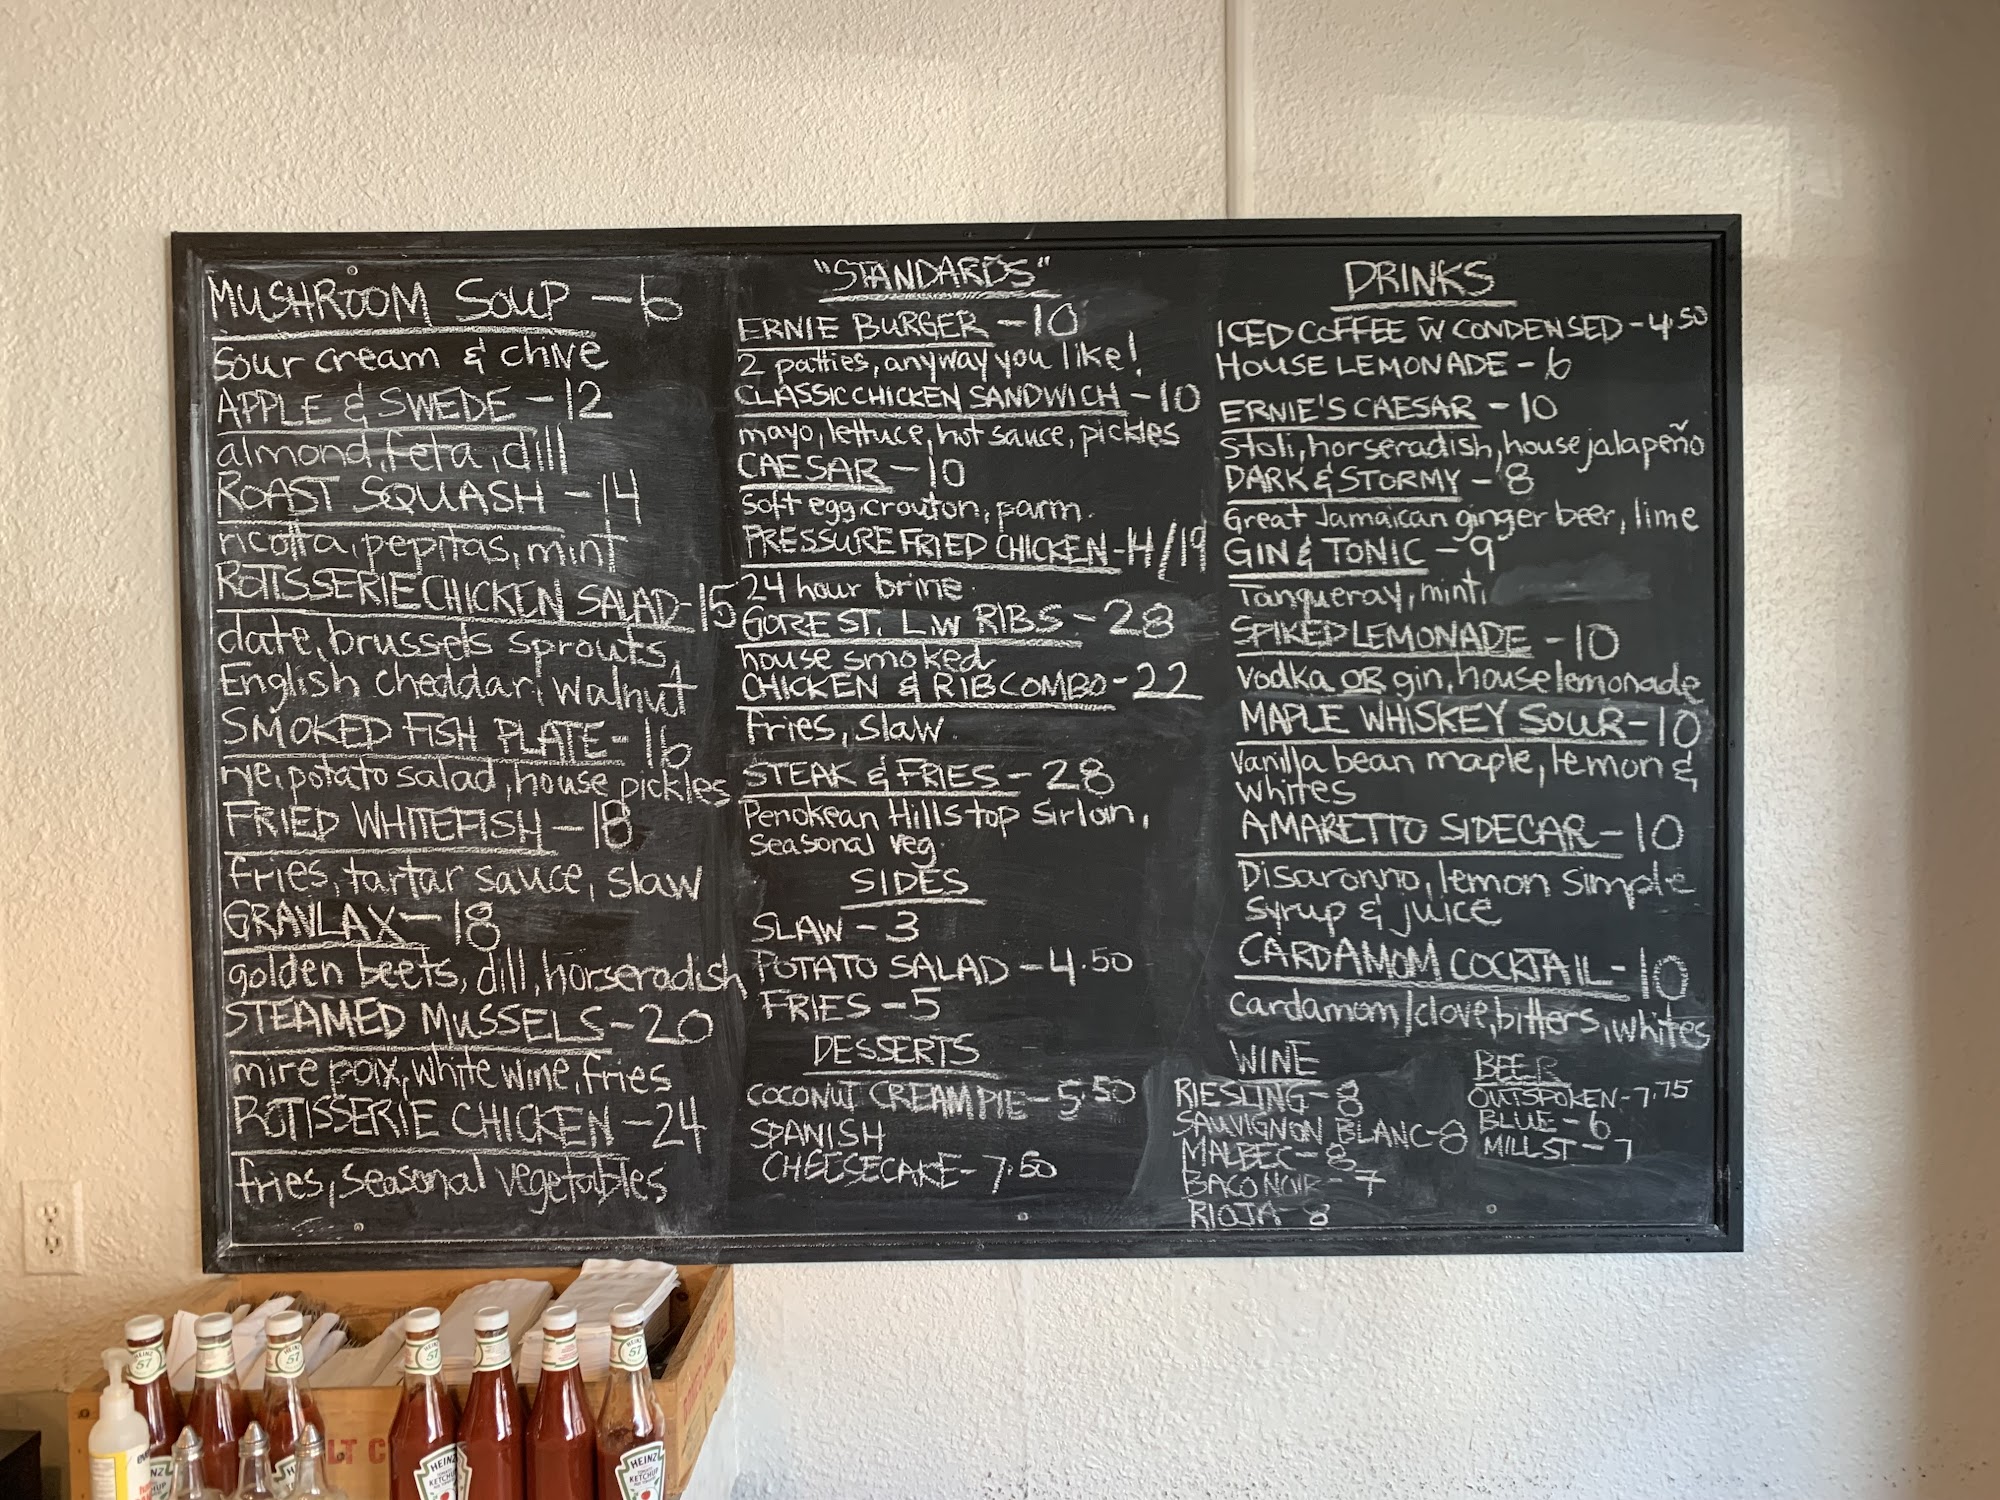 MUSHROOM SOUP - 6
sour cream & chive
APPLE & SWEDE - 12
almond, feta, dill
ROAST SQUASH - 14
ricotta, pepitas, mint
ROTISSERIE CHICKEN SALAD - 15
date, brussels sprouts,
English cheddar, walnut
SMOKED FISH PLATE - 16
rye, potato salad, house pickles
FRIED WHITEFISH - 18
fries, tartar sauce, slaw
GRAVLAX - 18
golden beets, dill, horseradish
STEAMED MUSSELS - 20
mire poix, white wine, fries
ROTISSERIE CHICKEN - 24
fries, seasonal vegetables
"STANDARDS"
ERNIE BURGER - 10
2 patties, anyway you like!
CLASSIC CHICKEN SANDWICH - 10
mayo, lettuce, hot sauce, pickles
CAESAR - 10
soft egg, crouton, parm.
PRESSURE FRIED CHICKEN - 14/19
24 hour brine.
GORE ST. L.W RIBS - 28
house smoked
CHICKEN & RIB COMBO - 22
fries, slaw.
STEAK & FRIES - 28
Penokean Hills top sirloin,
seasonal veg.
SIDES
SLAW - 3
POTATO SALAD - 4.50
FRIES - 5
DESSERTS
COCONUT CREAM PIE - 5.50
SPANISH
CHEESECAKE - 7.50
DRINKS
ICED COFFEE W CONDENSED - 4.50
HOUSE LEMONADE - 6
ERNIE'S CAESAR - 10
Stoli, horseradish, house jalapeño
DARK & STORMY - 8
Great Jamaican ginger beer, lime
GIN & TONIC - 9
Tanqueray, mint,
SPIKED LEMONADE - 10
vodka OR gin, house lemonade
MAPLE WHISKEY SOUR - 10
Vanilla bean maple, lemon &
whites
AMARETTO SIDECAR - 10
Disaronno, lemon simple
syrup & juice
CARDAMOM COCKTAIL - 10
cardamom/clove, bitters, whites
WINE
RIESLING - 8
SAUVIGNON BLANC - 8
MALBEC - 8
BACO NOIR - 7
RIOJA - 8
BEER
OUTSPOKEN - 7.75
BLUE - 6
MILL ST - 7
HEINZ
57
HEINZ
57
HEINZ
KETCHUP
HEINZ
KETCHUP